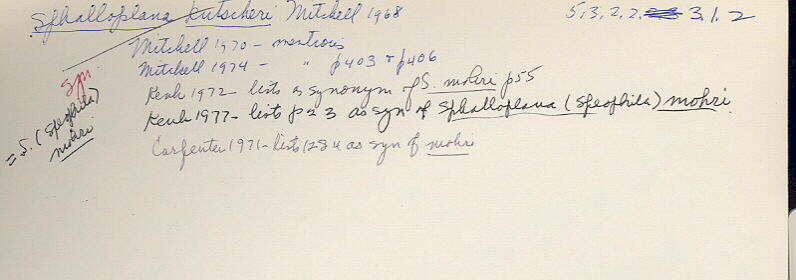 Sphalloplana kutscheri Mitchell 1968 5,3,2,2, 3,1,2
Mitchell 1970 - mentions
Mitchell 1974 - " p403 & p406
Kenk 1972 - lists as synonym of S. mohri p55
Kenk 1977 - lists p23 as syn of Sphalloplana (Speophila) mohri
Carpenter 1971 - lists as syn of mohri
Syn.
= S. (Speophila) mohri